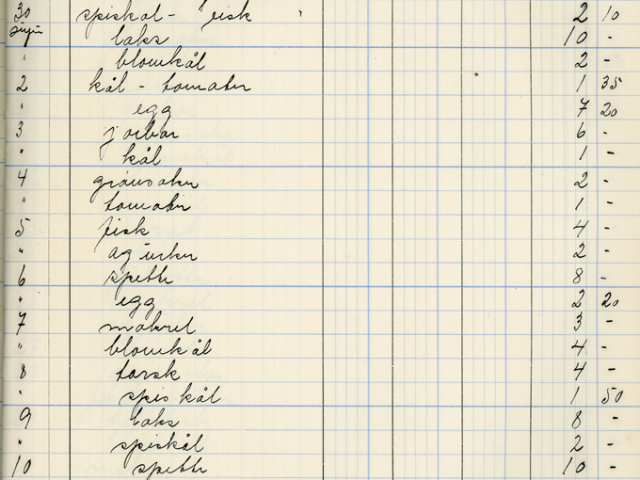 30 spiskol - fisk 2 10
laks 10 -
" blomkål 2 -
2 kål - tomater 1 35
" egg 7 20
3 jorbar 6 -
" kål 1 -
4 grønsaker 2 -
" tomater 1 -
5 fisk 4 -
" agurker 2 -
6 spette 8 -
" egg 2 20
7 makrel 3 -
" blomkål 4 -
8 torsk 4 -
" spis kål 1 50
9 laks 8 -
" spiskål 2 -
10 spette 10 -